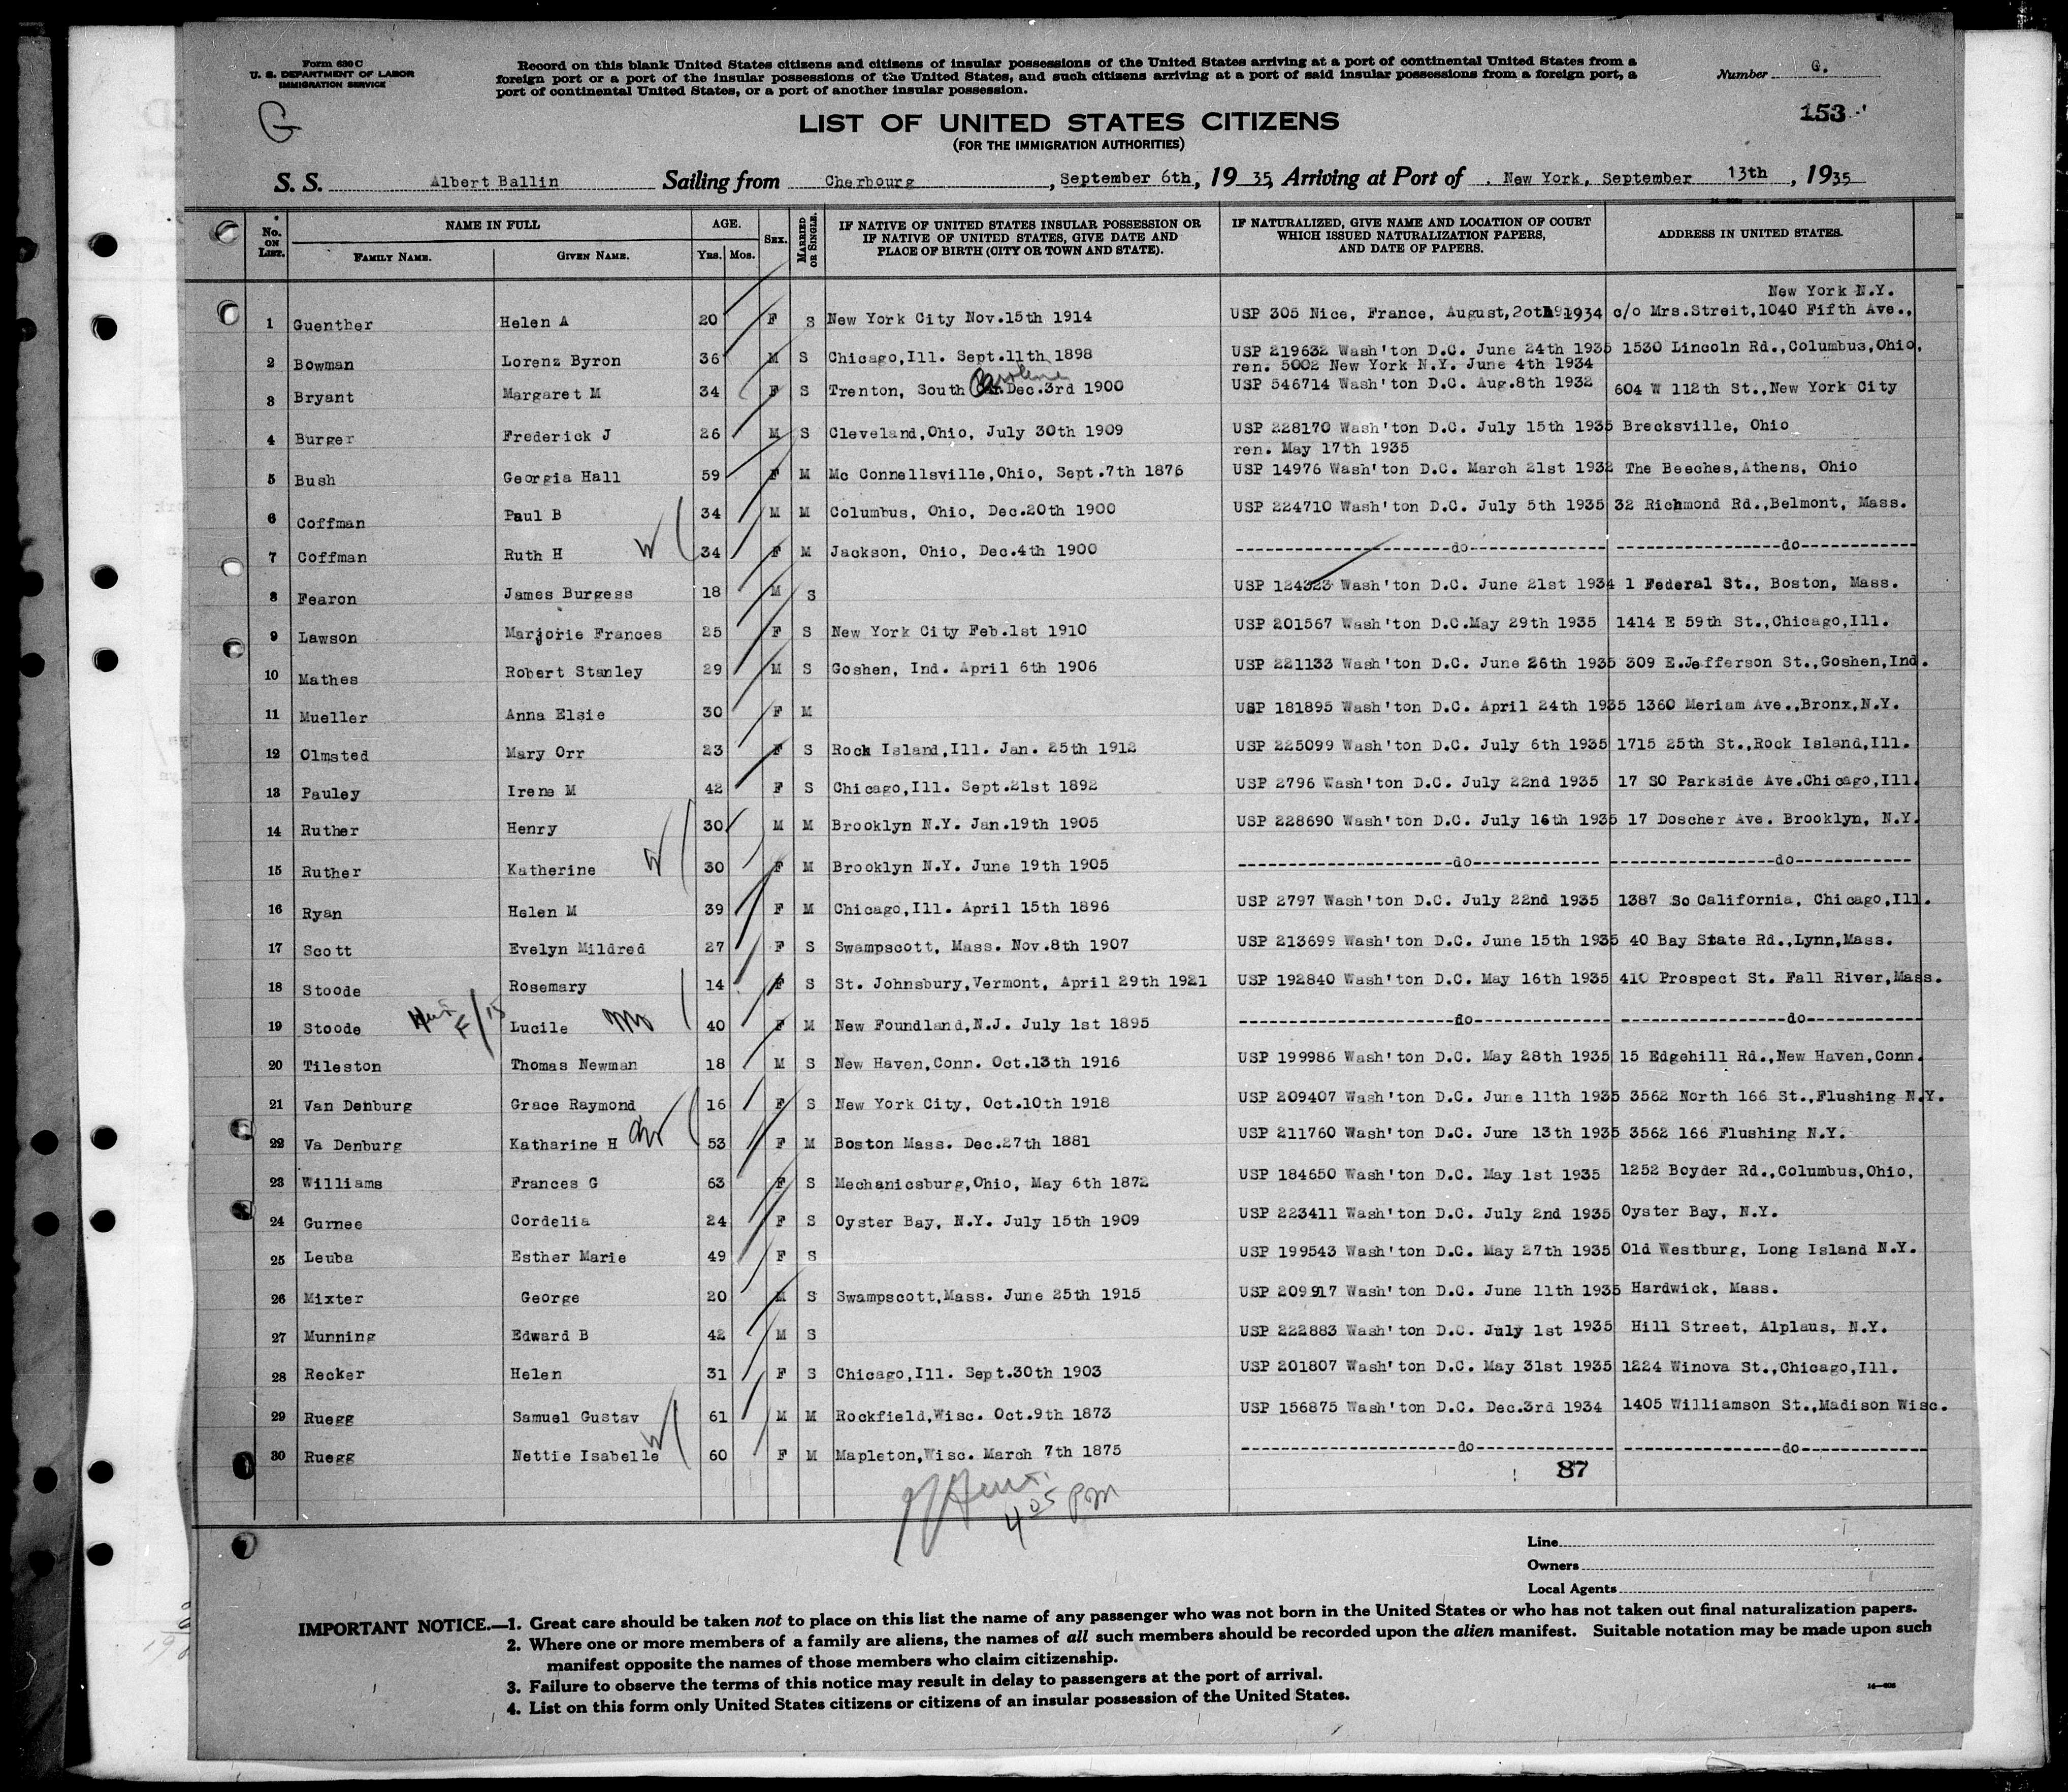 Form 630 C
U. S. DEPARTMENT OF LABOR
IMMIGRATION SERVICE
G
Record on this blank United States citizens and citizens of insular possessions of the United States arriving at a port of continental United States from a
foreign port or a port of the insular possessions of the United States, and such citizens arriving at a port of said insular possessions from a foreign port, a
port of continental United States, or a port of another insular possession.
Number G.
153
LIST OF UNITED STATES CITIZENS
(FOR THE IMMIGRATION AUTHORITIES)
S. S. Albert Ballin Sailing from Cherbourg, September 6th, 19 35, Arriving at Port of . New York, September 13th, 1935
No. ON LIST. NAME IN FULL FAMILY NAME. GIVEN NAME. AGE. YRS. MOS. SEX. MARRIED OR SINGLE. IF NATIVE OF UNITED STATES INSULAR POSSESSION OR IF NATIVE OF UNITED STATES, GIVE DATE AND PLACE OF BIRTH (CITY OR TOWN AND STATE). IF NATURALIZED, GIVE NAME AND LOCATION OF COURT WHICH ISSUED NATURALIZATION PAPERS, AND DATE OF PAPERS. ADDRESS IN UNITED STATES.
New York N.Y.
1 Guenther Helen A 20 F S New York City Nov.15th 1914 USP 305 Nice, France, August, 20th 1934 c/o Mrs.Streit,1040 Fifth Ave.,
2 Bowman Lorenz Byron 36 M S Chicago,Ill. Sept.11th 1898 USP 219632 Wash'ton D.C. June 24th 1935 1530 Lincoln Rd.,Columbus,Ohio,
ren. 5002 New York N.Y. June 4th 1934
3 Bryant Margaret M 34 F S Trenton, South Caroline Dec.3rd 1900 USP 546714 Wash'ton D.C. Aug.8th 1932 604 W 112th St.,New York City
4 Burger Frederick J 26 M S Cleveland,Ohio, July 30th 1909 USP 228170 Wash'ton D.C. July 15th 1935 Brecksville, Ohio
ren. May 17th 1935
5 Bush Georgia Hall 59 F M Mc Connellsville,Ohio, Sept.7th 1876 USP 14976 Wash'ton D.C. March 21st 1932 The Beeches,Athens, Ohio
6 Coffman Paul B 34 M M Columbus, Ohio, Dec.20th 1900 USP 224710 Wash'ton D.C. July 5th 1935 32 Richmond Rd.,Belmont, Mass.
7 Coffman Ruth H W 34 F M Jackson, Ohio, Dec.4th 1900 do do
8 Fearon James Burgess 18 M S USP 124323 Wash'ton D.C. June 21st 1934 1 Federal St., Boston, Mass.
9 Lawson Marjorie Frances 25 F S New York City Feb.1st 1910 USP 201567 Wash'ton D.C.May 29th 1935 1414 E 59th St.,Chicago,Ill.
10 Mathes Robert Stanley 29 M S Goshen, Ind. April 6th 1906 USP 221133 Wash'ton D.C. June 26th 1935 309 E.Jefferson St.,Goshen,Ind.
11 Mueller Anna Elsie 30 F M USP 181895 Wash'ton D.C. April 24th 1935 1360 Meriam Ave.,Bronx,N.Y.
12 Olmsted Mary Orr 23 F S Rock Island,Ill. Jan. 25th 1912 USP 225099 Wash'ton D.C. July 6th 1935 1715 25th St.,Rock Island,Ill.
13 Pauley Irene M 42 F S Chicago,Ill. Sept.21st 1892 USP 2796 Wash'ton D.C. July 22nd 1935 17 SO Parkside Ave.Chicago,Ill.
14 Ruther Henry 30 M M Brooklyn N.Y. Jan.19th 1905 USP 228690 Wash'ton D.C. July 16th 1935 17 Doscher Ave. Brooklyn, N.Y.
15 Ruther Katherine W 30 F M Brooklyn N.Y. June 19th 1905 do do
16 Ryan Helen M 39 F M Chicago,Ill. April 15th 1896 USP 2797 Wash'ton D.C. July 22nd 1935 1387 So California, Chicago,Ill.
17 Scott Evelyn Mildred 27 F S Swampscott, Mass. Nov.8th 1907 USP 213699 Wash'ton D.C. June 15th 1935 40 Bay State Rd.,Lynn,Mass.
18 Stoode Rosemary 14 F S St. Johnsbury,Vermont, April 29th 1921 USP 192840 Wash'ton D.C. May 16th 1935 410 Prospect St. Fall River,Mass.
19 Stoode Lucile 40 F M New Foundland,N.J. July 1st 1895 do do
20 Tileston Thomas Newman 18 M S New Haven,Conn. Oct.13th 1916 USP 199986 Wash'ton D.C. May 28th 1935 15 Edgehill Rd.,New Haven,Conn.
21 Van Denburg Grace Raymond 16 F S New York City, Oct.10th 1918 USP 209407 Wash'ton D.C. June 11th 1935 3562 North 166 St.,Flushing N.Y.
22 Va Denburg Katharine H 53 F M Boston Mass. Dec.27th 1881 USP 211760 Wash'ton D.C. June 13th 1935 3562 166 Flushing N.Y.
23 Williams Frances G 63 F S Mechanicsburg,Ohio, May 6th 1872 USP 184650 Wash'ton D.C. May 1st 1935 1252 Boyder Rd.,Columbus,Ohio,
24 Gurnee Cordelia 24 F S Oyster Bay, N.Y. July 15th 1909 USP 223411 Wash'ton D.C. July 2nd 1935 Oyster Bay, N.Y.
25 Leuba Esther Marie 49 F S USP 199543 Wash'ton D.C. May 27th 1935 Old Westburg, Long Island N.Y.
26 Mixter George 20 M S Swampscott,Mass. June 25th 1915 USP 209917 Wash'ton D.C. June 11th 1935 Hardwick, Mass.
27 Munning Edward B 42 M S USP 222883 Wash'ton D.C. July 1st 1935 Hill Street, Alplaus, N.Y.
28 Recker Helen 31 F S Chicago,Ill. Sept.30th 1903 USP 201807 Wash'ton D.C. May 31st 1935 1224 Winova St.,Chicago,Ill.
29 Ruegg Samuel Gustav 61 M M Rockfield,Wisc. Oct.9th 1873 USP 156875 Wash'ton D.C. Dec.3rd 1934 1405 Williamson St.,Madison Wisc.
30 Ruegg Nettie Isabelle W 60 F M Mapleton,Wisc. March 7th 1875 do do
87
4 05 pm
Line
Owners
Local Agents
IMPORTANT NOTICE.—1. Great care should be taken not to place on this list the name of any passenger who was not born in the United States or who has not taken out final naturalization papers.
2. Where one or more members of a family are aliens, the names of all such members should be recorded upon the alien manifest. Suitable notation may be made upon such
manifest opposite the names of those members who claim citizenship.
3. Failure to observe the terms of this notice may result in delay to passengers at the port of arrival.
4. List on this form only United States citizens or citizens of an insular possession of the United States.